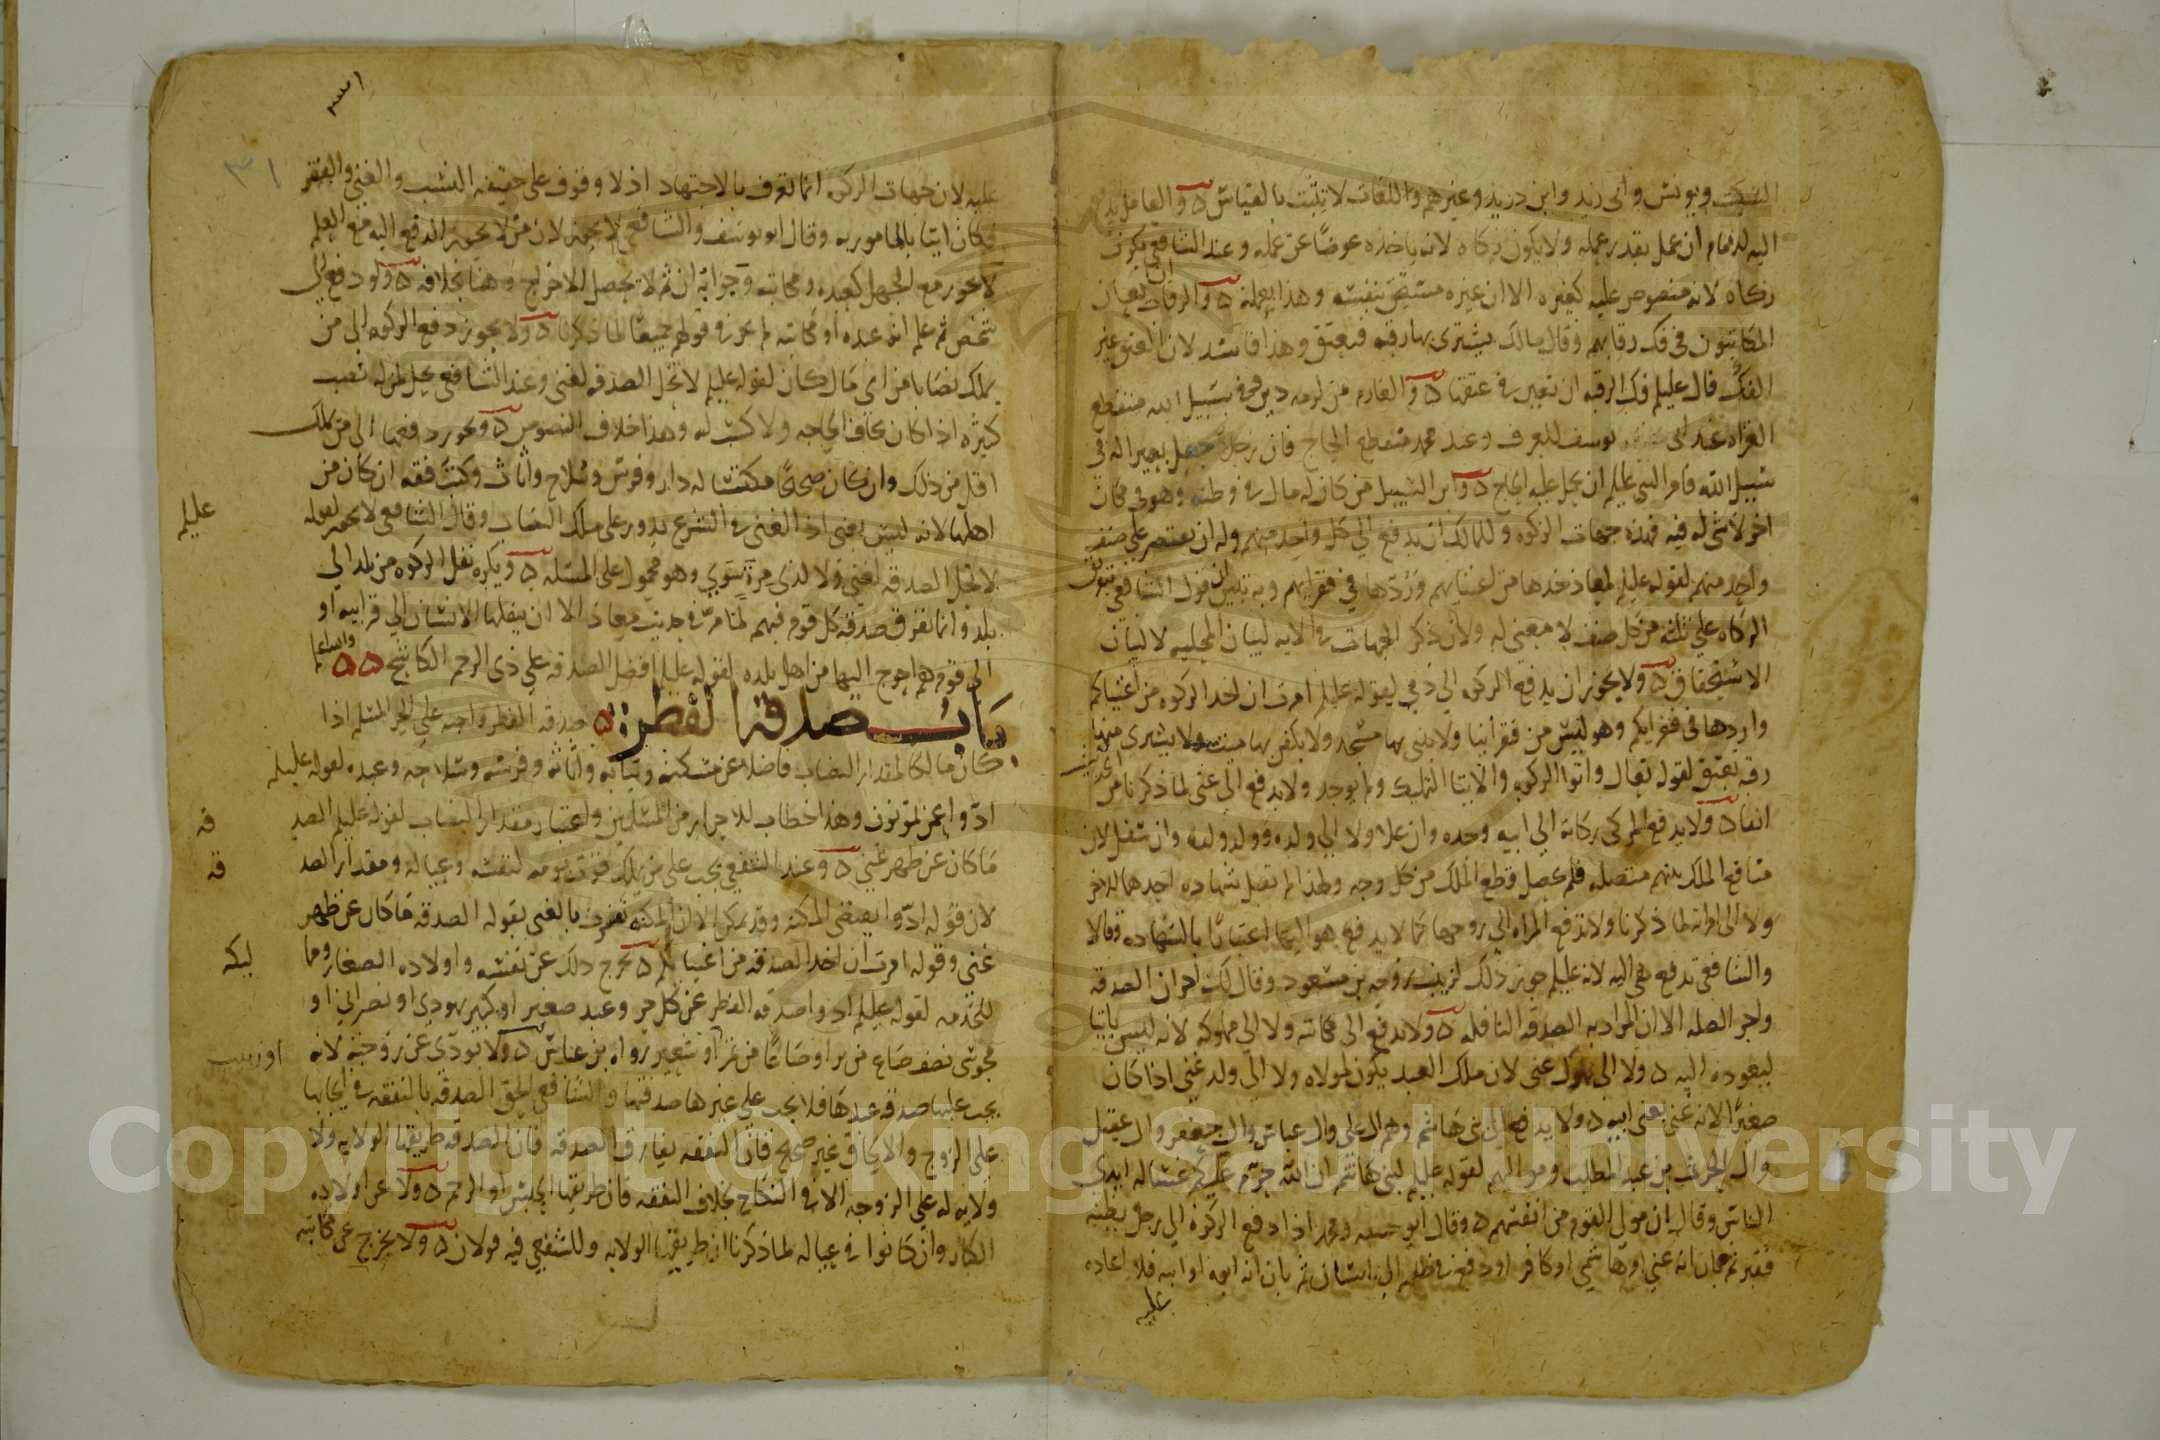 السكيت ويونس وابي زيد وابن دريد وغيرهم واللغات لا تثبت بالقياس ٥ والعامل يدفع
اليه الامام ان عمل بقدر عمله ولا يكون زكاه لانه ياخذه عوضًا عن عمله وعند الشافعي يكون
زكاه لانه منصوص عليه كغيره الا ان غيره مستحق بنفسه وهذا بعمله ٥ والرقاب ان يعان
المكاتبون في فك رقابهم وقال مالك يشتري بها رقبه فيعتق وهذا فاسد لان العتق غير
الفك قال عليلم فك الرقبه ان تعين في عتقها ٥ والغارم من لزمه دين وفي سبيل الله منقطع
الغزاه عند ابي يوسف للعرف وعند محمد منقطع الحاج فان رجلا جعل بعيرا له في
سبيل الله فامر النبي عليلم ان يحمل عليه الحاج ٥ وابن السبيل من كان له مال في وطنه وهو في مكان
اخر لا شي له فيه فهذه جهات الزكوه وللمالك ان يدفع الي كل واحد منهم وله ان يقتصر علي صنف
واحد منهم لقوله عليلم لمعاذ خذها من اغنيايهم وردها في فقرايهم وبه تبين ان قول الشافعي بتفريق
الزكاه علي ثلثه من كل صنف لا معني له ولان ذكر الجهات في الايه لبيان المحليه لا لبيان
الاستحقاق ٥ ولا يجوز ان يدفع الزكوه الي ذمي لقوله عليلم امرت ان اخذ الزكوه من اغنياكم
واردها في فقرايكم وهو ليس من فقرائنا ولا يبني بها مسجد ولا يكفن بها ميت ولا يشتري منها
رقبه تعتق لقوله تعالي واتوا الزكوه والايتا التمليك ولم يوجد ولا يدفع الي غني لما ذكرنا من
انفا ٥ ولا يدفع المزكي زكاته الي ابيه وجده وان علا ولا الي ولده وولد ولده وان سفل لان
منافع الملك بينهم متصله فلم يحصل قطع الملك من كل وجه ولهذا لم تقبل شهاده احدهما للاخر
ولا الي امراته لما ذكرنا ولا تدفع المراه الي زوجها كما لا يدفع هو اليها اعتبارًا بالشهاده وقالا
والشافعي تدفع هي اليه لانه عليلم جوز ذلك لزينب زوجه بن مسعود وقال لك اجران الصدقه
واجر الصله الا ان المراد به الصدقه النافله ٥ ولا يدفع الي مكاتبه ولا الي مملوكه لانه ليس بايتا
ليعوده اليه ٥ ولا الي مملوك غني لان ملك العبد يكون لمولاه ولا الي ولد غني اذا كان
صغيرًا لانه غني بغني ابيه ٥ ولا يدفع الي بني هاشم وهم ال علي وال عباس وال جعفر وال عقيل
وال الحرث بن عبد المطلب ومواليهم لقوله عليلم لبني هاشم ان الله حرم عليكم غساله ايدي
الناس وقال ان مولي القوم من انفسهم ٥ وقال ابو حنيفه ومحمد اذا دفع الزكوه الي رجل يظنه
فقير ثم بان انه غني او هاشمي او كافر او دفع في ظلمه الي انسان ثم بان انه ابوه او ابنه فلا اعاده
عليه
٣١
عليه لان جهات الزكوه انما تعرف بالاجتهاد اذ لا وقوف علي حقيقه النسب والغني والفقر
فكان ايتا بالمامور به وقال ابو يوسف والشافعي لا يجزيه لان من لا يجوز الدفع اليه مع العلم
لا يجوز مع الجهل كعبده ومكاتبه وجوابه ان ثم لا يحصل الاخراج وهنا بخلافه ٥ ولو دفع الي
شخص ثم علم انه عبده او مكاتبه لم يجز في قولهم جميعًا لما ذكرنا ٥ ولا يجوز دفع الزكوه الي من
يملك نصابا من اي مال كان لقوله عليلم لا تحل الصدقه لغني وعند الشافعي يحل لمن له نصب
كثيره اذا كان يخاف الحاجه ولا كسب له وهذا خلاف النصوص ٥ ويجوز دفعها الي من يملك
اقل من ذلك وان كان صحيحًا مكتسبا له دار وفرس وسلاح واثاث وكتب فقه ان كان من
اهلها لانه ليس بغني اذ الغني في الشرع يدور علي ملك النصاب وقال الشافعي لا يجوز لقوله
عليلم
لا تحل الصدقه لغني ولا لذي مرة سوي وهو محمول علي المسله ٥ ويكره نقل الزكوه من بلد الي
بلد وانما تفرق صدقه كل قوم فيهم لما مر في حديث معاذ الا ان ينقلها الانسان الي قرابته او
الي قوم هم احوج اليها من اهل بلده لقوله عليلم افضل الصدقه علي ذي الرحم الكاشح ٥ ٥ والله اعلم
باب صدقة الفطر ٥ صدقه الفطر واجبه علي الحر المسلم اذا
كان مالكا لمقدار النصاب فاضلا عن مسكنه وثيابه واثاثه وفرسه وسلاحه وعبده لقوله عليلم
ادوا عمن تمونون وهذا خطاب للاحرار من المسلمين واعتبار مقدار النصاب لقوله عليلم الصد
قه
ما كان عن ظهر غني ٥ وعند الشفعي يجب علي من يملك قوت يومه لنفسه وعياله ومقدار الصد
قه
لان قوله ادوا يقتضي المكنه وقد يمكن الا ان المكنه تعرف بالغني بقوله الصدقه ما كان عن ظهر
غني وقوله امرت ان اخذ الصدقه من اغنيايكم ٥ يخرج ذلك عن نفسه واولاده الصغار ومما
ليكه
للخدمه لقوله عليلم ادوا صدقه الفطر عن كل حر وعبد صغير او كبير يهودي او نصراني او
مجوسي نصف صاع من بر او صاعًا من تمر او شعير رواه بن عباس ٥ ولا يودي عن زوجته لانه
يجب عليها صدقه عبدها فلا يجب علي غيرها صدقتها والشافعي الحق الصدقه بالنفقه في ايجابها
علي الزوج والالحاق غير صحيح فان النفقه يفارق الصدقه فان الصدقه طريقها الولايه ولا
ولايه له علي الزوجه الا في النكاح بخلاف النفقه فان طريقها الحبس او الرحم ٥ ولا عن اولاده
الكبار وان كانوا في عياله لما ذكرنا ان طريقها الولايه وللشفعي فيه قولان ٥ ولا يخرج عن مكاتبه
Copyright © King Saud University